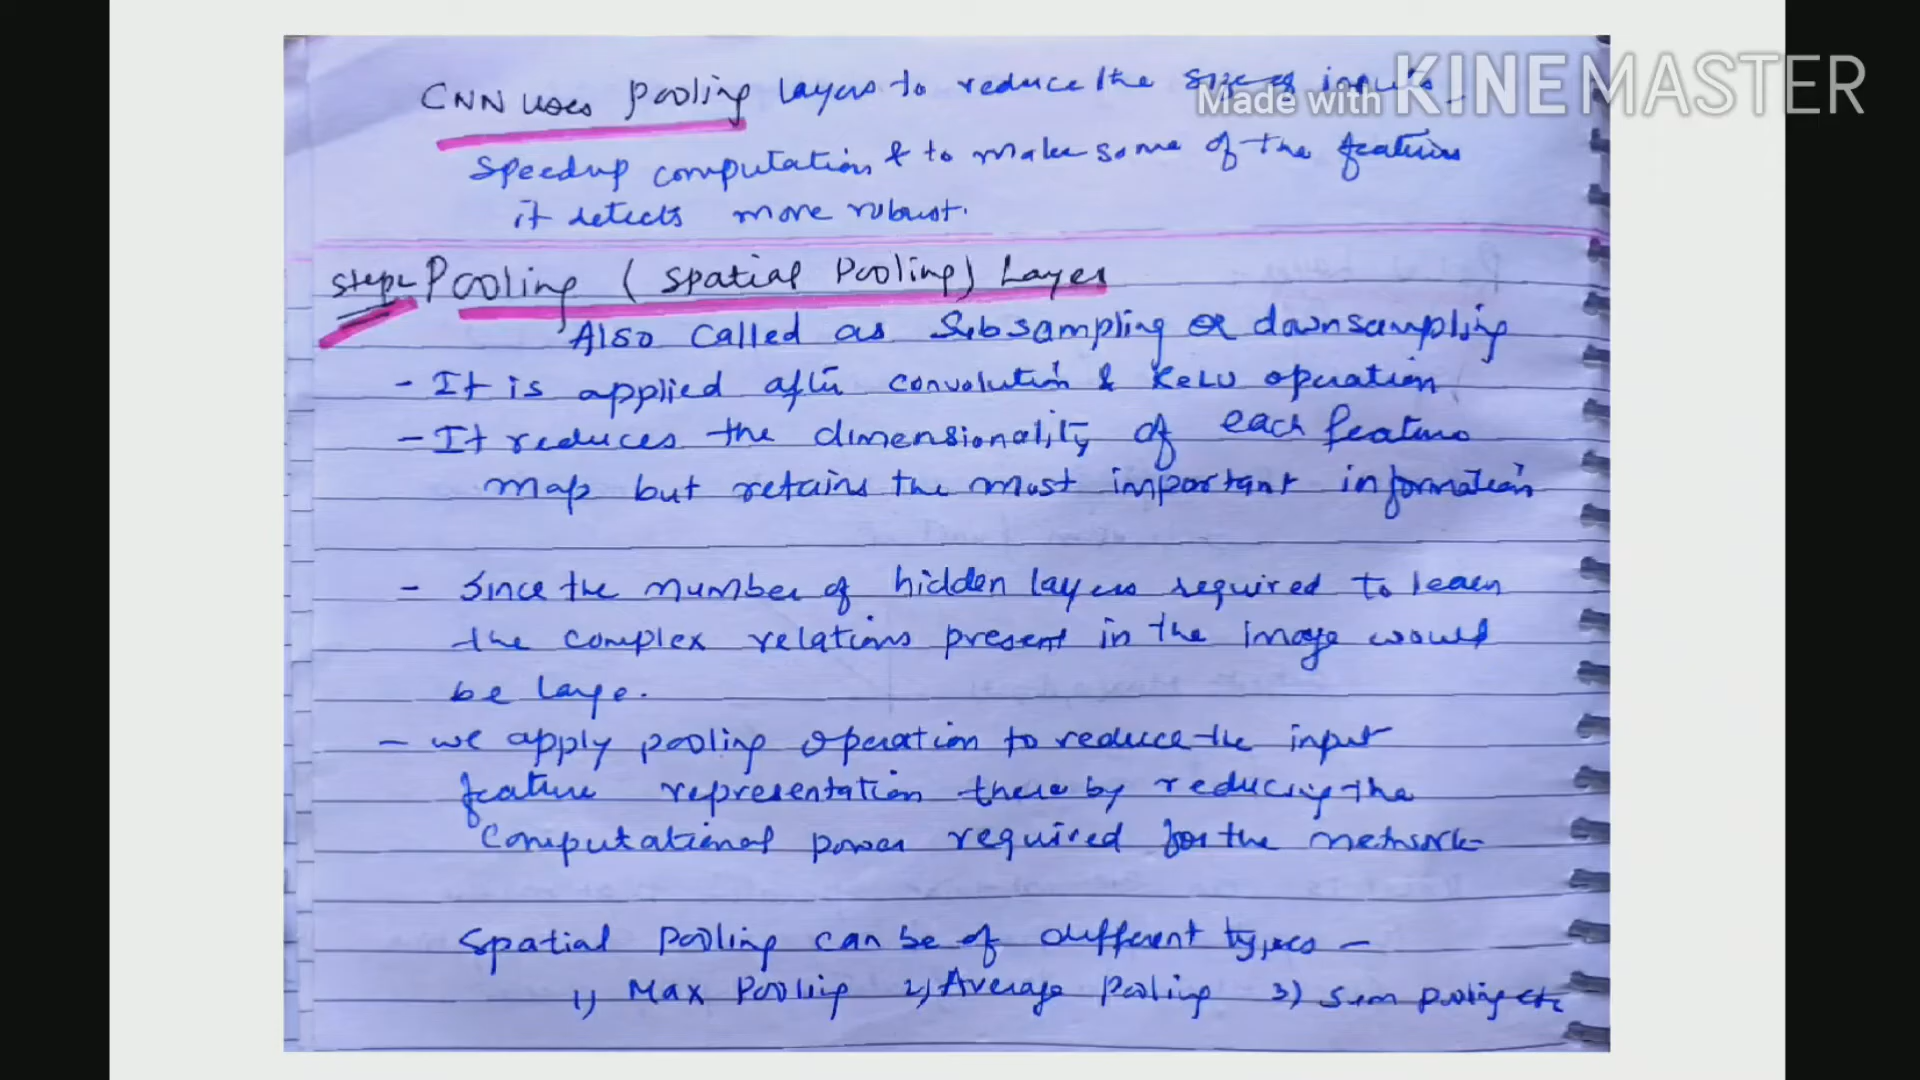 CNN uses Pooling layers to reduce the size of inputs
Made with KINEMASTER
speedup computation & to make some of the features
it detects more robust.
Step2 Pooling (Spatial Pooling) Layer
Also called as Subsampling or downsampling
- It is applied after convolution & ReLU operation
- It reduces the dimensionality of each feature
map but retains the most important information
- Since the number of hidden layers required to learn
the complex relations present in the image would
be large.
- we apply pooling operation to reduce the input
feature representation there by reducing the
Computational power required for the network
Spatial Pooling can be of different types -
1) Max Pooling 2) Average Pooling 3) Sum pooling etc